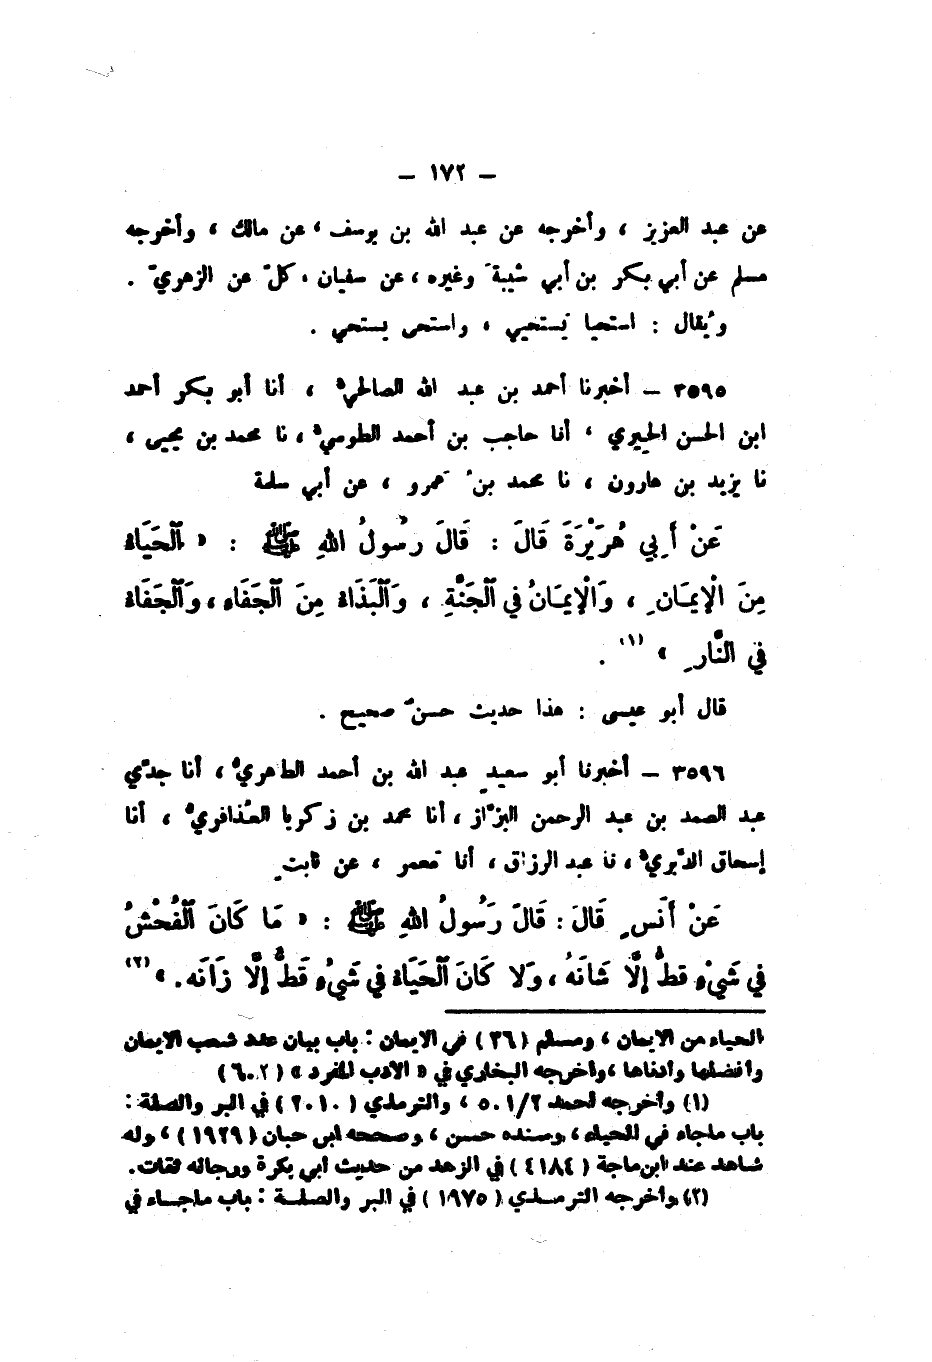 – ١٧٢ –
عن عبد العزيز ، وأخرجه عن عبد الله بن يوسف ، عن مالك ، وأخرجه
مسلم عن أبي بكر بن أبي شيبةَ وغيره ، عن سفيان ، كلٌّ عن الزهريِّ .
ويُقال : استحيا يَستحيي ، واستحى يستحي .
٣٥٩٥ – أخبرنا أحمد بن عبد الله الصالحيُّ ، أنا أبو بكر أحمد
ابن الحسن الحِيري ، أنا حاجب بن أحمد الطوسيُّ ، نا محمد بن يحيى ،
نا يزيد بن هارون ، نا محمد بنُ عَمرو ، عن أبي سلمة
عَنْ أَبِي هُرَيْرَةَ قَالَ : قَالَ رَسُولُ اللهِ ﷺ : « الْحَيَاءُ
مِنَ الْإِيمَانِ ، وَالْإِيمَانُ فِي الْجَنَّةِ ، وَالْبَذَاءُ مِنَ الْجَفَاءِ ، وَالْجَفَاءُ
فِي النَّارِ » (١) .
قال أبو عيسى : هذا حديث حسنٌ صحيح .
٣٥٩٦ – أخبرنا أبو سعيدٍ عبد الله بن أحمد الطاهريُّ ، أنا جدِّي
عبد الصمد بن عبد الرحمن البزّاز ، أنا محمد بن زكريا العُذافريُّ ، أنا
إسحاق الدَّبريُّ ، نا عبد الرزاق ، أنا مَعمر ، عن ثابتٍ
عَنْ أَنَسٍ قَالَ : قَالَ رَسُولُ اللهِ ﷺ : « مَا كَانَ الْفُحْشُ
فِي شَيْءٍ قَطُّ إِلَّا شَانَهُ ، وَلَا كَانَ الْحَيَاءُ فِي شَيْءٍ قَطُّ إِلَّا زَانَه . » (٢)
الحياء من الايمان ، ومسلم ( ٣٦ ) في الايمان : باب بيان عدد شعب الايمان
وأفضلها وأدناها ، وأخرجه البخاري في « الأدب المفرد » ( ٦٠٢ )
(١) وأخرجه أحمد ٥٠١/٢ ، والترمذي ( ٢٠١٠ ) في البر والصلة :
باب ماجاء في الحياء ، وسنده حسن ، وصححه ابن حبان ( ١٩٢٩ ) ، وله
شاهد عند ابن ماجة ( ٤١٨٤ ) في الزهد من حديث أبي بكرة ورجاله ثقات .
(٢) وأخرجه الترمذي ( ١٩٧٥ ) في البر والصلة : باب ماجاء في